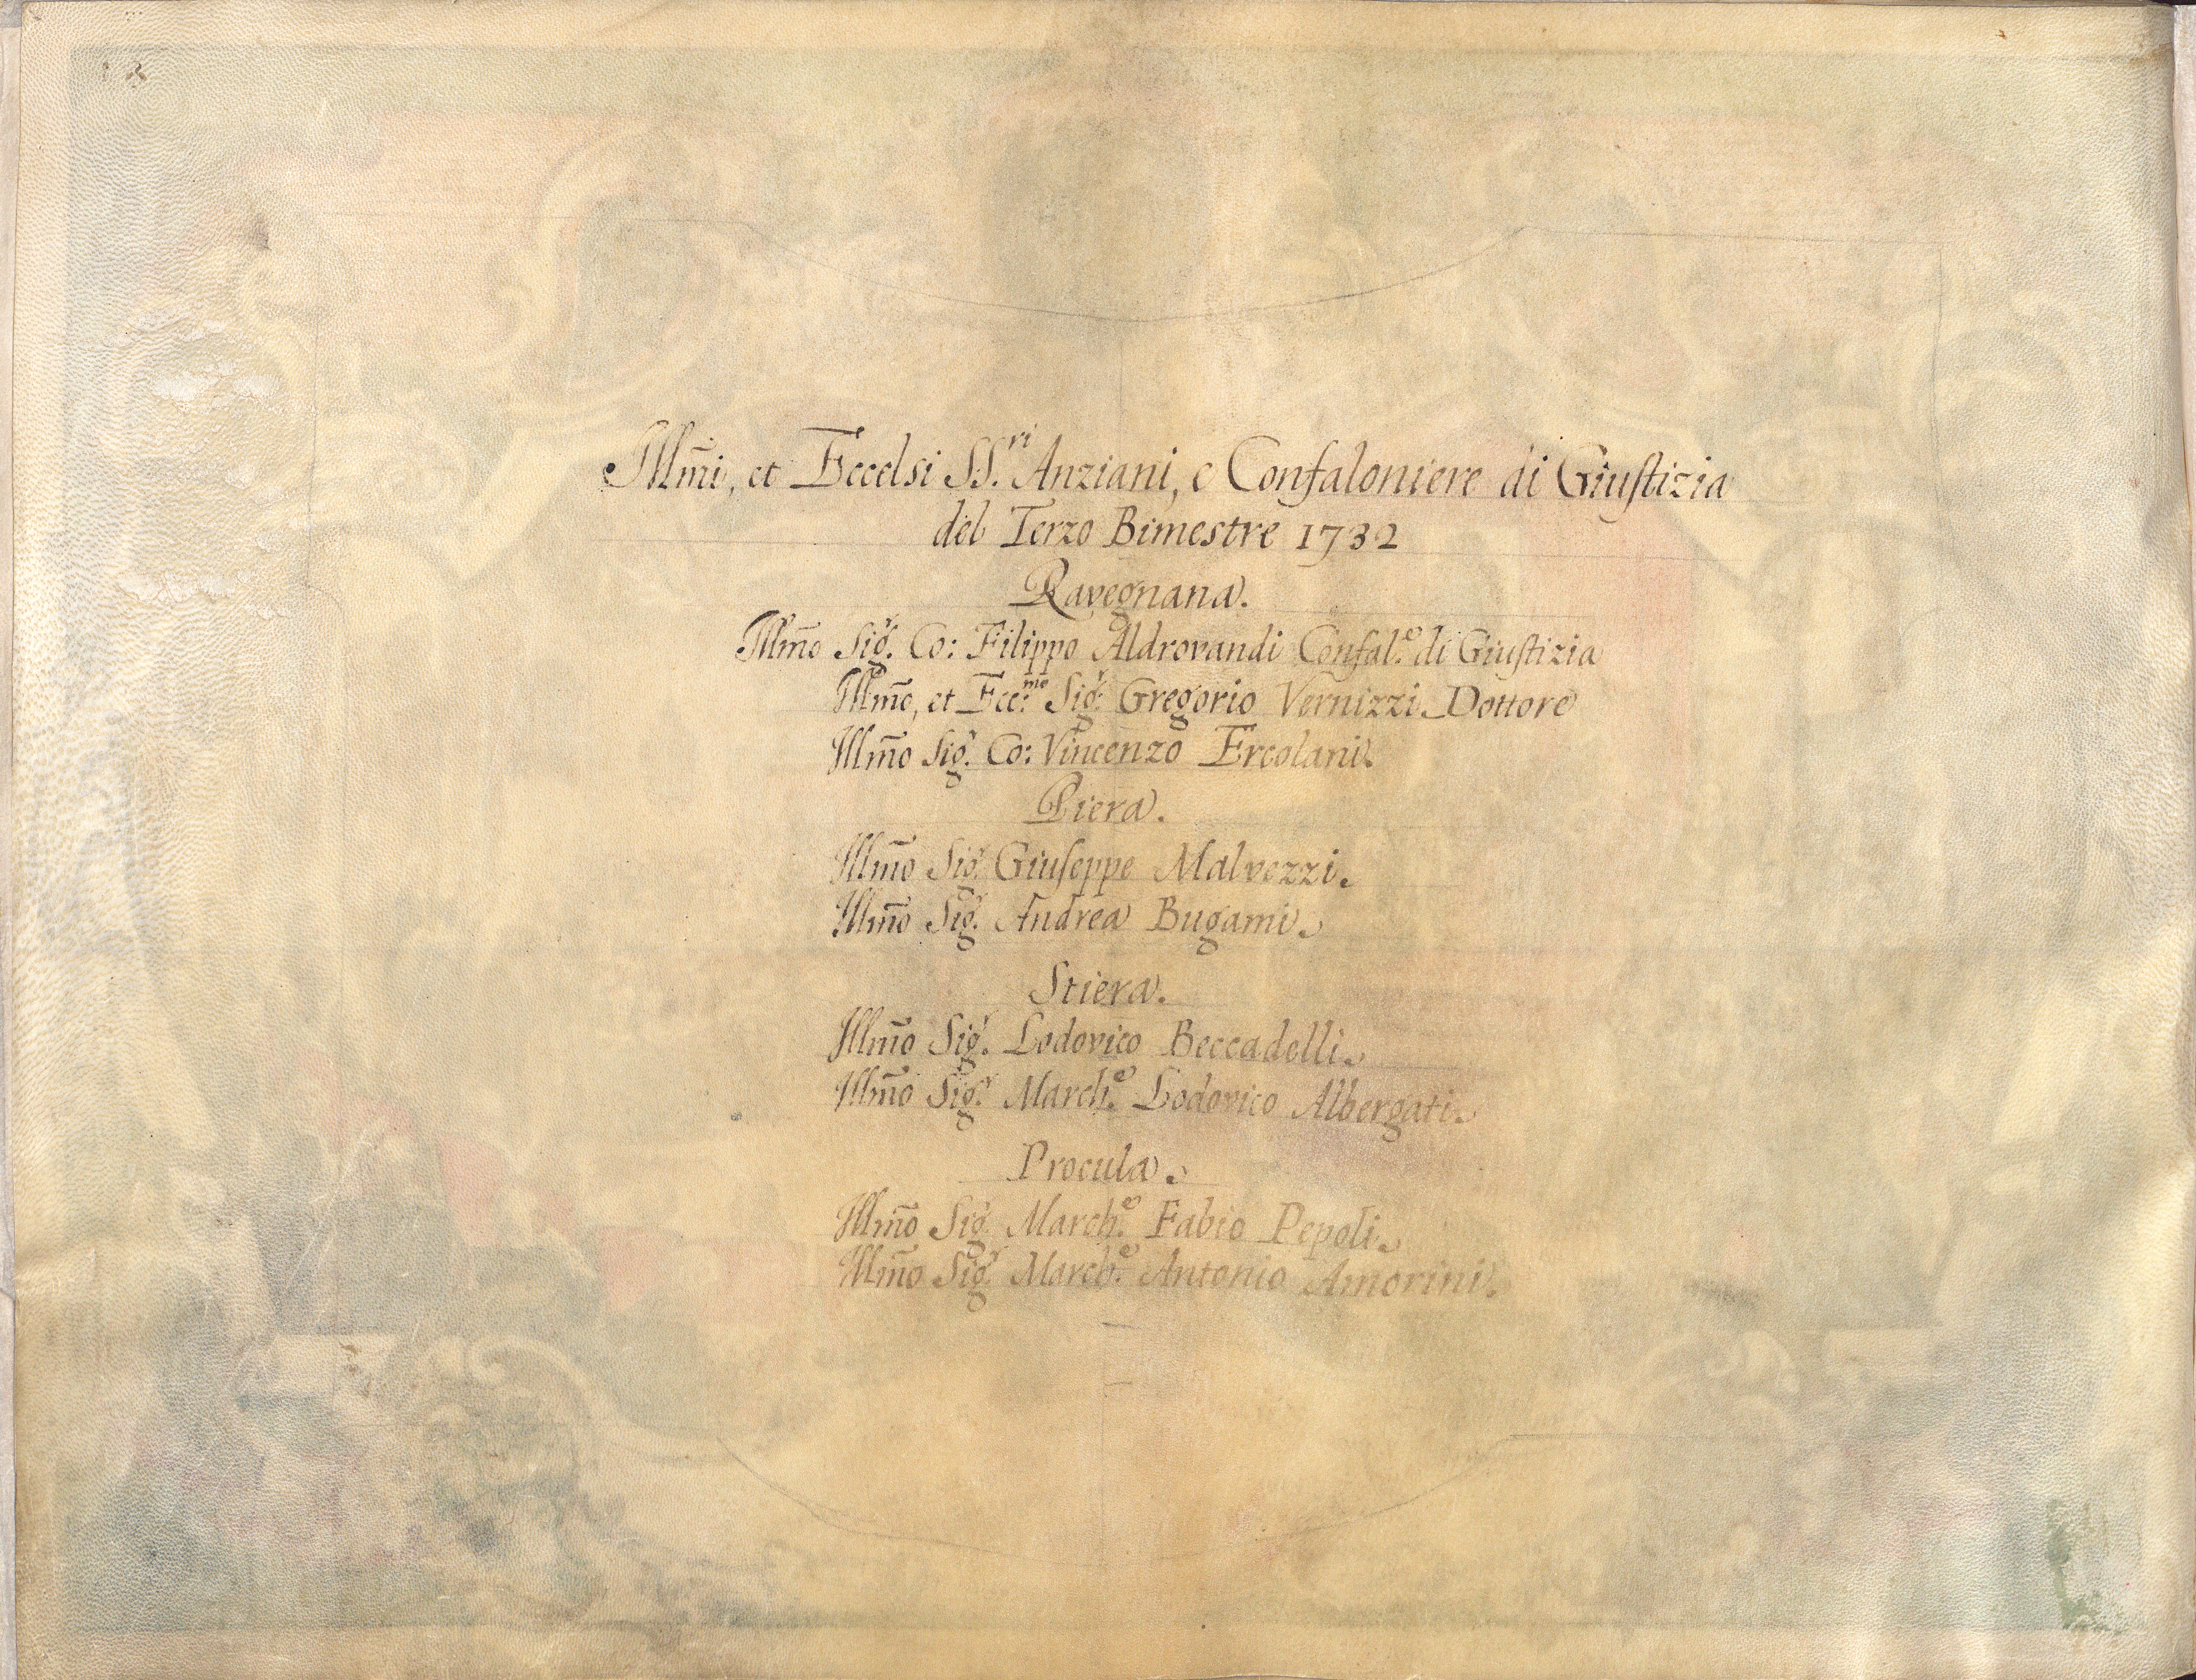 Illm̃i, et Eccelsi SS.ri Anziani, e Confaloniere di Giustizia
del Terzo Bimestre 1732
Ravegnana.
Illm̃o Sig.r Co: Filippo Aldrovandi Confal.e di Giustizia
Illm̃o, et Ecc.mo Sig.r Gregorio Vernizzi Dottore
Illm̃o Sig.r Co: Vincenzo Ercolani.
Piera.
Illm̃o Sig.r Giuseppe Malvezzi.
Illm̃o Sig.r Andrea Bugami.
Stiera.
Illm̃o Sig.r Lodovico Beccadelli.
Illm̃o Sig.r March.e Lodovico Albergati.
Procula.
Illm̃o Sig.r March.e Fabio Pepoli.
Illm̃o Sig.r March.e Antonio Amorini.